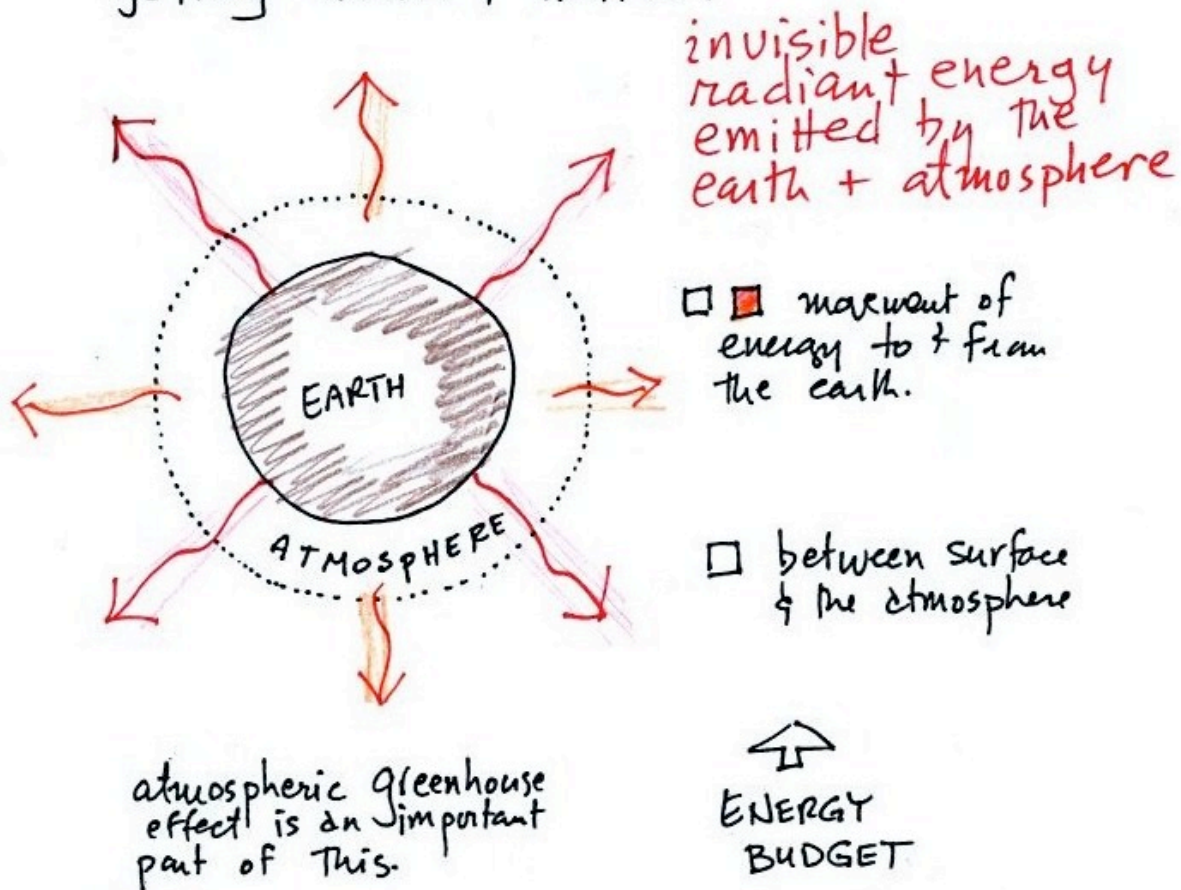 invisible
radiant energy
emitted by the
earth + atmosphere
EARTH
ATMOSPHERE
movement of
energy to & from
the earth.
between surface
& the atmosphere
atmospheric greenhouse
effect is an important
part of this.
ENERGY
BUDGET